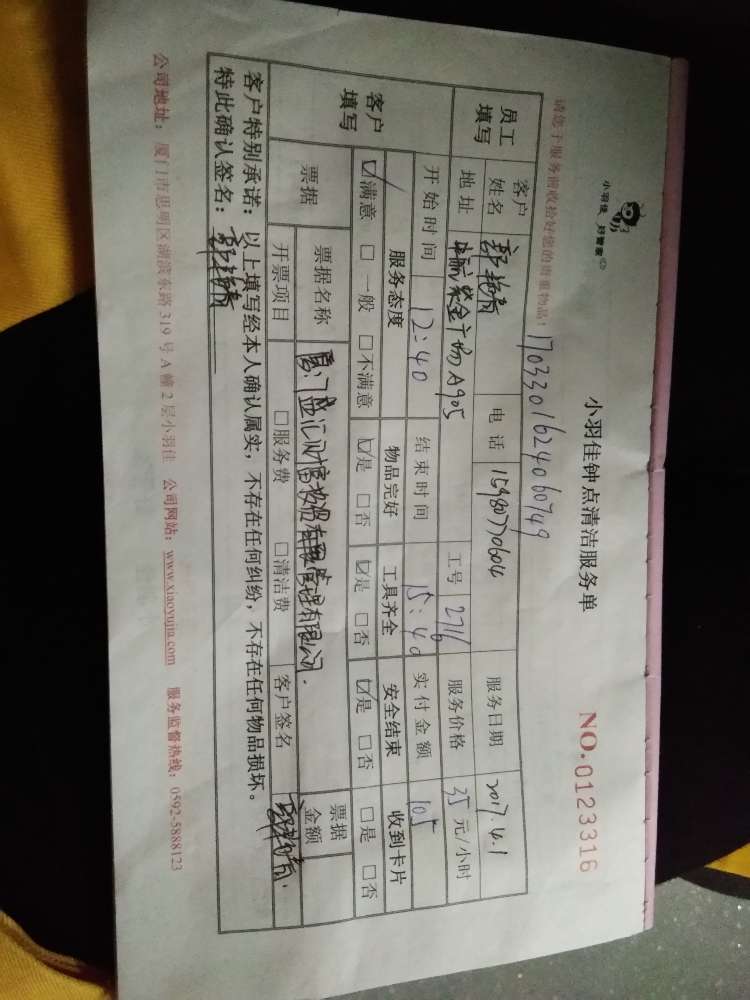 小羽佳 好管家
小羽佳钟点清洁服务单
NO.0123316
请您于服务前收拾好您的贵重物品!
1703301624060749
员工填写 客户姓名 郭艳清 电话 15980770604 工号 2716 服务日期 2017.4.1
地址 中航紫金广场A905 服务价格 35 元/小时
开始时间 12:40 结束时间 15:40 实付金额 105
客户填写 服务态度 物品完好 工具齐全 安全结束 收到卡片
☑满意 □一般 □不满意 ☑是 □否 ☑是 □否 ☑是 □否 □是 □否
票据 票据名称 管理有限公司. 票据金额
开票项目 □服务费 □清洁费 客户签名 郭艳清.
客户特别承诺:以上填写经本人确认属实,不存在任何纠纷,不存在任何物品损坏。
特此确认签名:郭艳清
公司地址:厦门市思明区湖滨东路319号A幢2层小羽佳 公司网站:www.xiaoyujia.com 服务监督热线:0592-5888123